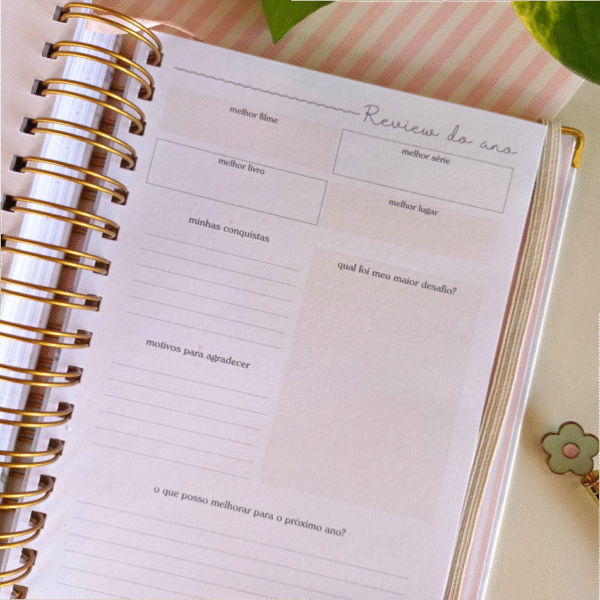 Review do ano
melhor filme
melhor série
melhor livro
melhor lugar
minhas conquistas
qual foi meu maior desafio?
motivos para agradecer
o que posso melhorar para o próximo ano?